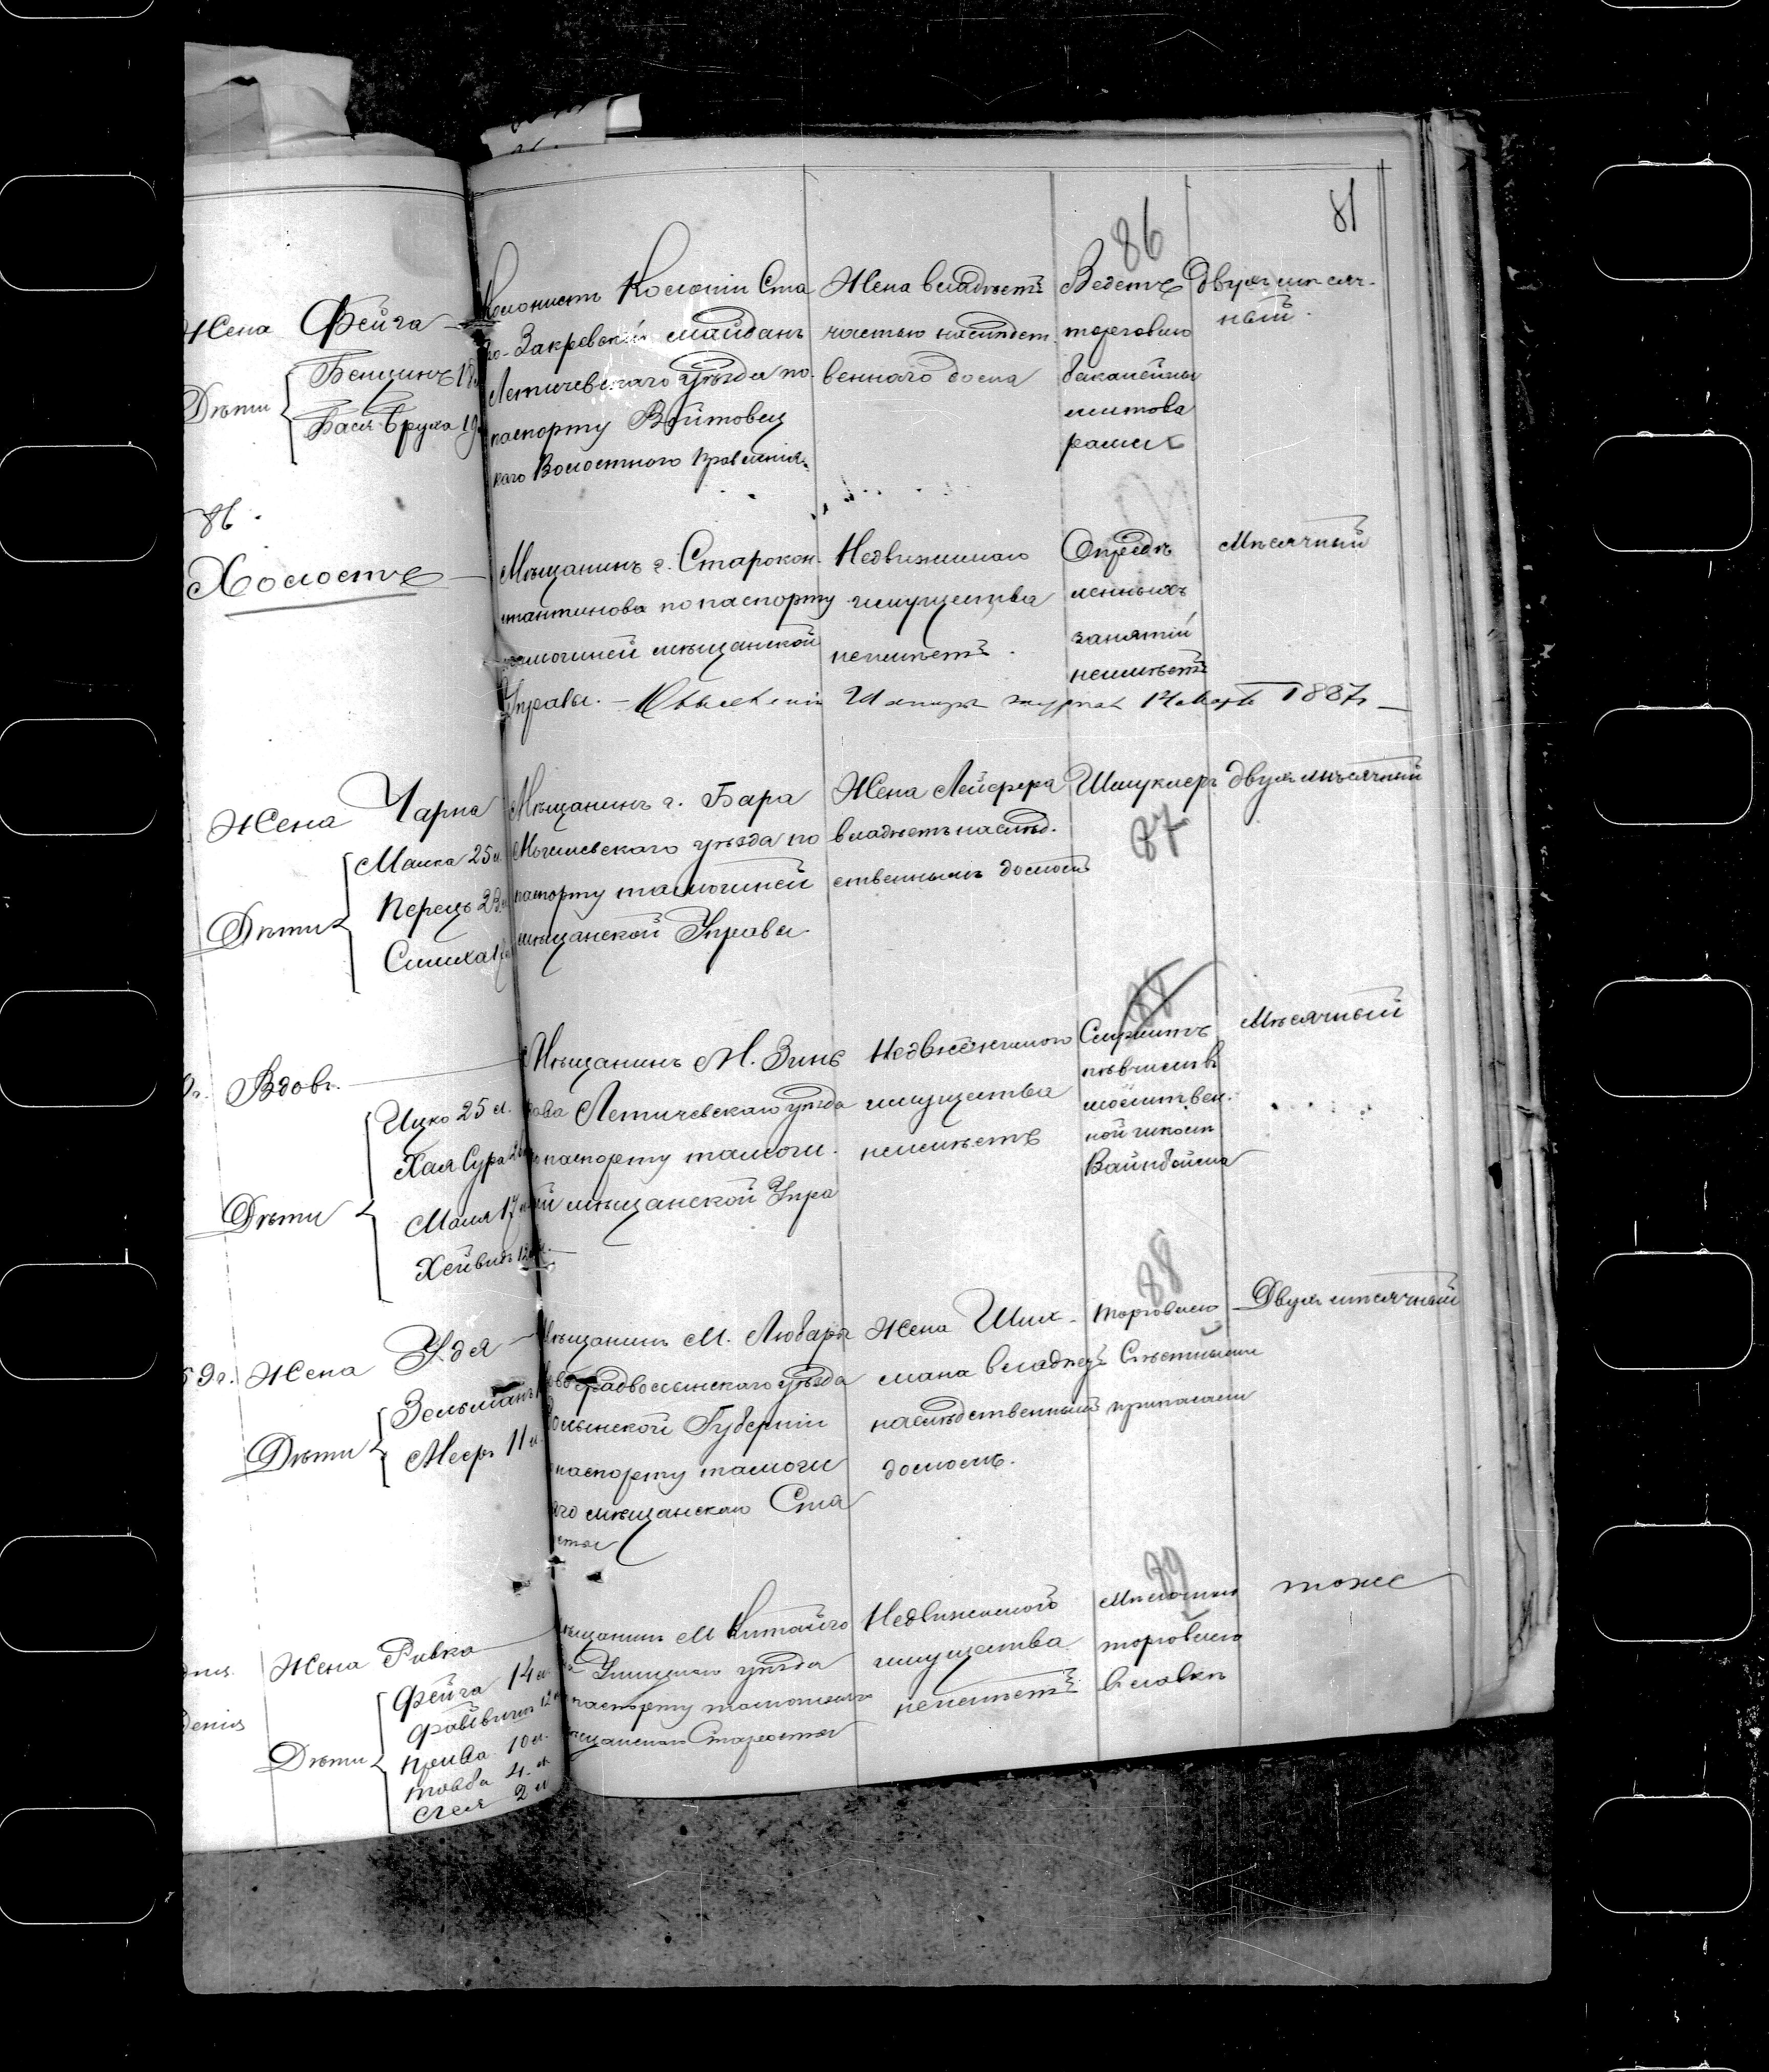 81
86
Жена Фейга
Дѣти
Бенціинъ 18
Бася-Бруха 19
Колонистъ Колоніи Ста
ро-Закревскій майданъ
Летичевскаго уѣзда по
паспорту Войтовец
каго Волостного Правленія.
Жена владѣетъ
частью наслѣдст
веннаго дома
Ведетъ
торговлю
бакалейны
ми това
рами
Двухмѣсяч-
ный.
86.
Холостъ
Мѣщанинъ г. Старокон.
стантинова по паспорту
тамошней мѣщанской
Управы.
Недвижимаго
имущества
неимѣетъ.
Опредѣ
ленныхъ
занятій
неимѣетъ
Мѣсячный
14 Марта 1887 г.
Жена Чарна
Дѣти
Малка 25 л.
Перецъ 23 л.
Симха
Мѣщанинъ г. Бара
Могилевскаго уѣзда по
паспорту тамошней
мѣщанской Управы
Жена Лейзера
владѣетъ наслѣд.
ственнымъ домомъ
Шмуклеръ
87
двухмѣсячный
Вдовъ.
Дѣти
Ицко 25 л.
Хая Сура
Маля 17 л.
Хейвидъ 12 л.
Мѣщанинъ М. Зинь
кова Летичевскаго уѣзда
по паспорту тамош.
ней мѣщанской Упра
Недвижимаго
имущества
неимѣетъ
88
Служитъ
пѣвчимъ въ
молитвен.
ной школѣ
Вайнбойма
Мѣсячный
9 г. Жена Удя
Дѣти
Зельманъ
Меер 11 л.
Мѣщанинъ М. Любара
Новоградволынскаго уѣзда
Волынской Губерніи
по паспорту тамошня
го мѣщанскаго Ста
росты
Жена Шил-
мана владѣетъ
наслѣдственнымъ
домомъ.
88
торговлею
Съѣстными
припасами
Двухмѣсячный
Жена Ривка
Дѣти
Фейга 14 л.
Файвишъ 12 л.
Прива 10 л.
Товба 4 л.
2 л.
Мѣщанинъ М Китайго
рода Ушицкаго уѣзда
по паспорту тамошняго
мѣщанскаго Старосты
Недвижимого
имущества
неимѣетъ
Мѣлочною
торговлею
въ лавкѣ
тоже